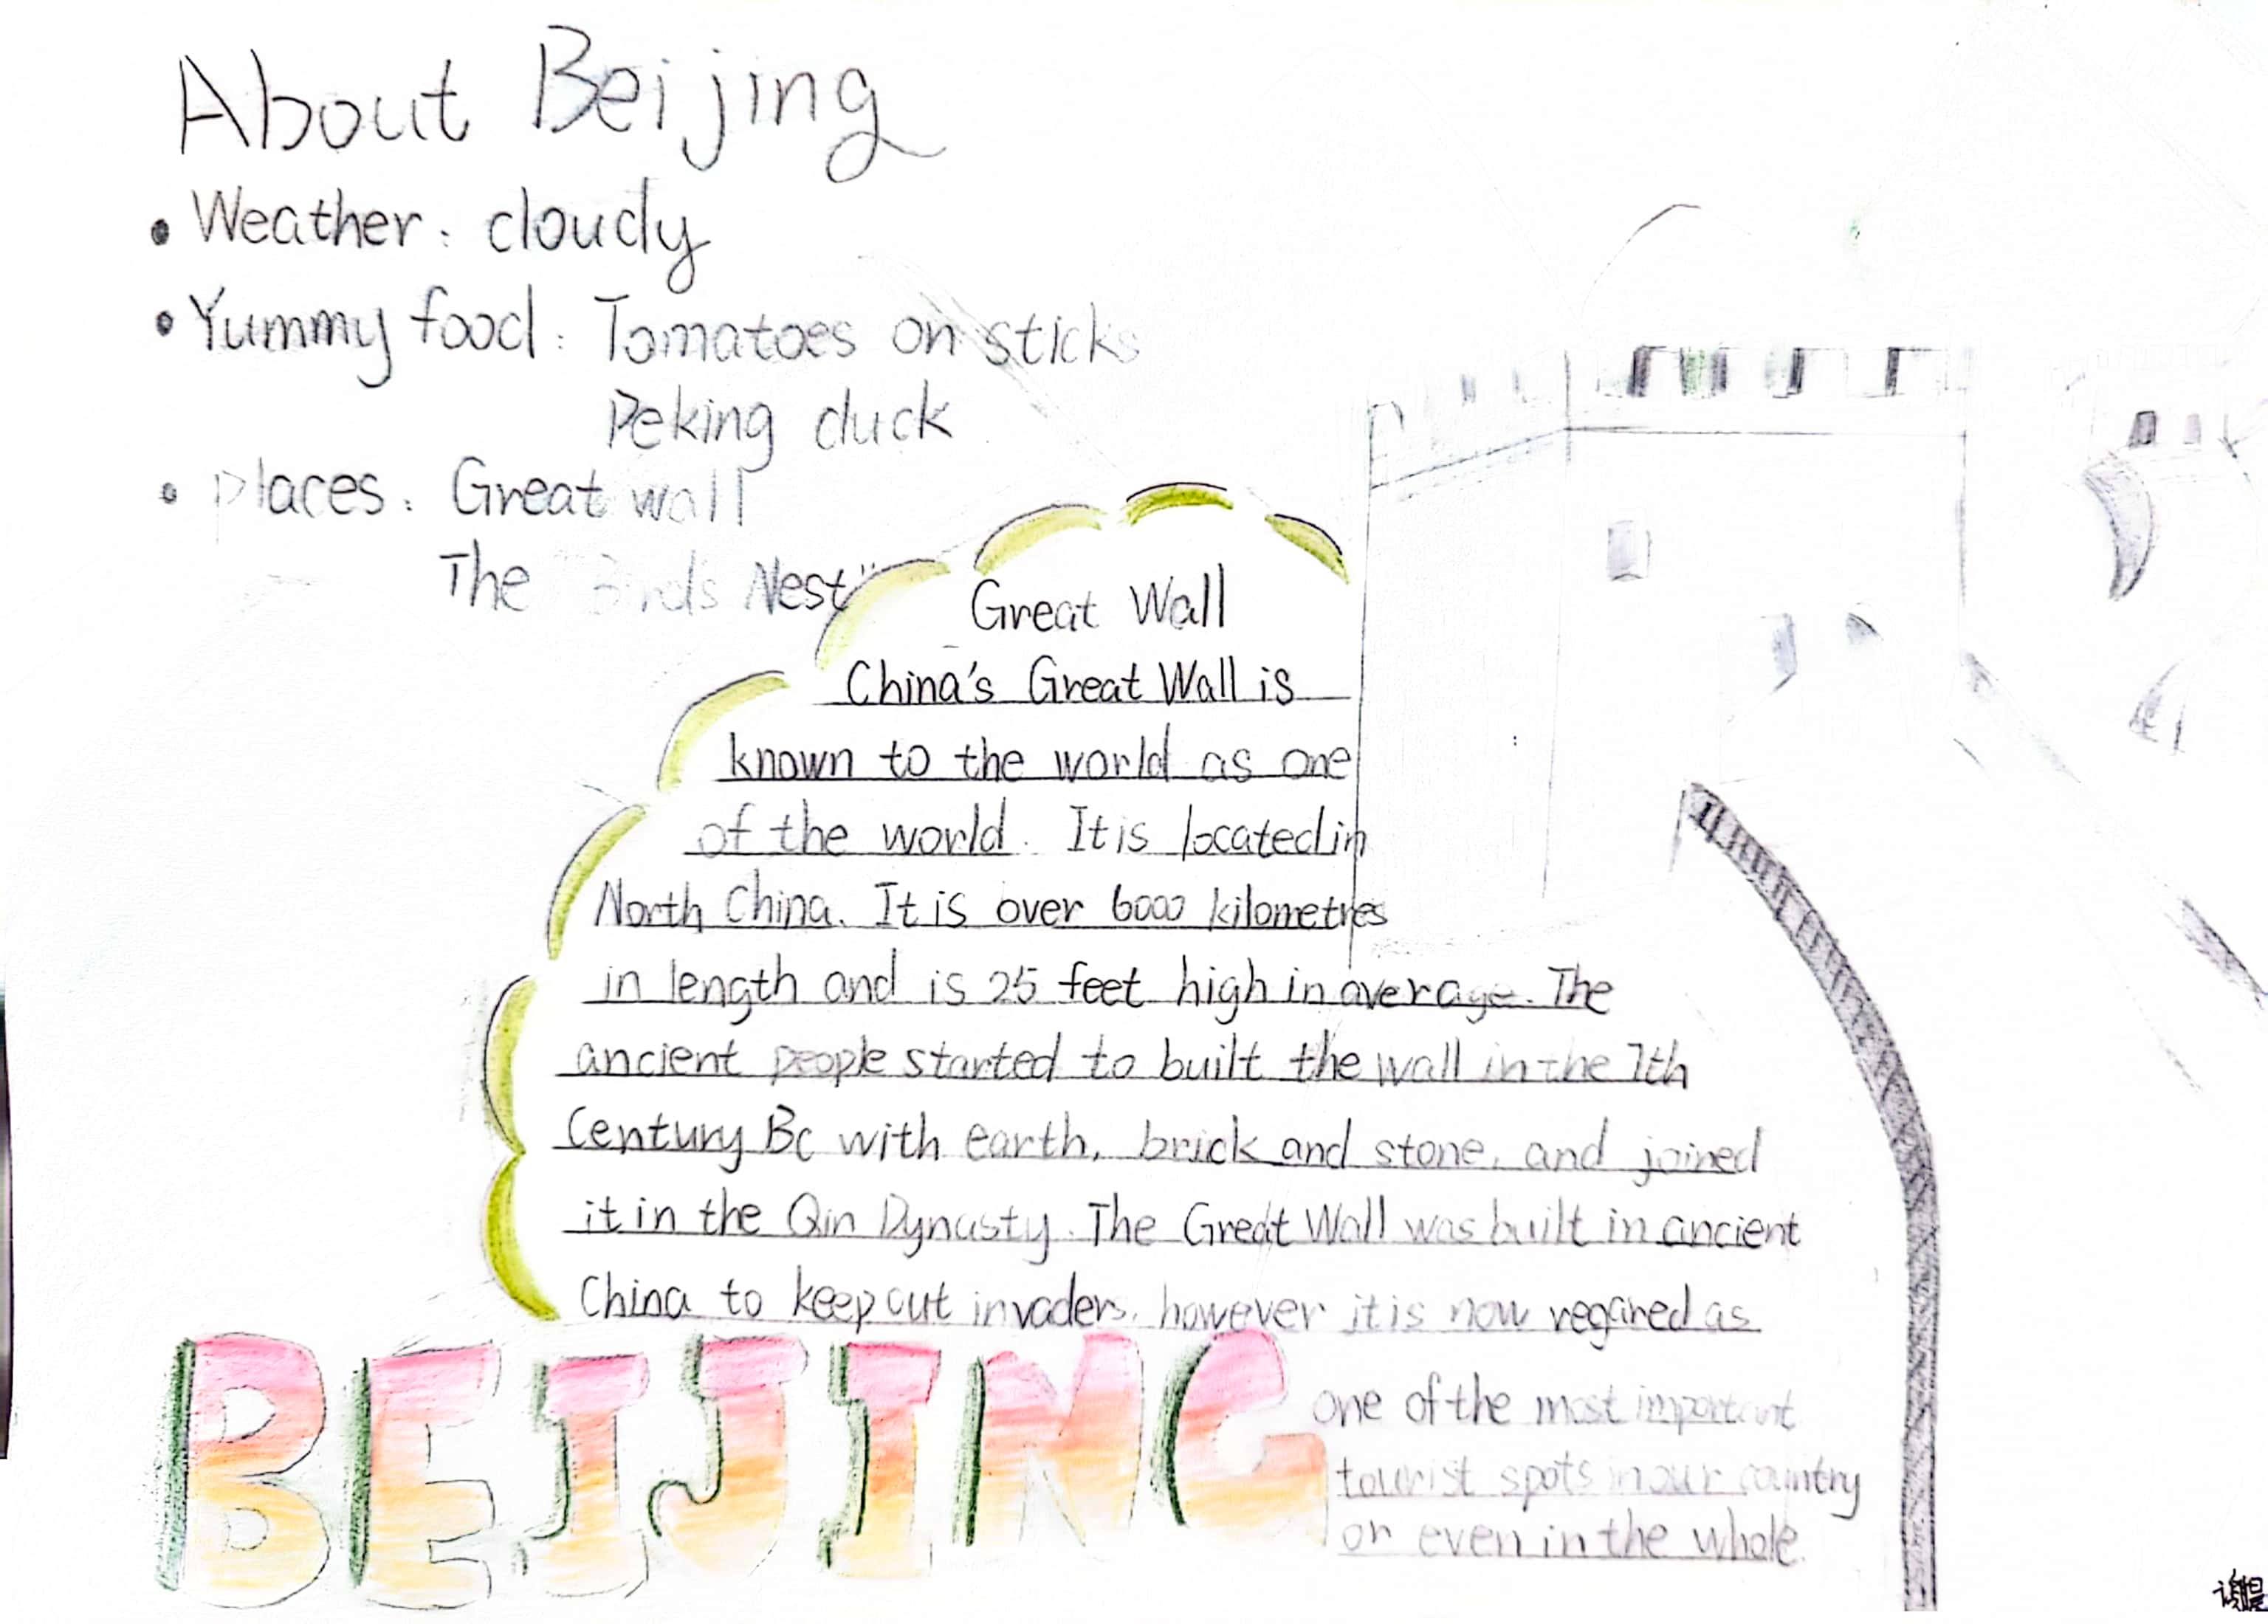 About Beijing
• Weather: cloudy
• Yummy food: Tomatoes on sticks
Peking duck
• places: Great wall
The "Birds Nest"
Great Wall
China's Great Wall is
known to the world as one
of the world. It is located in
North China. It is over 6000 kilometres
in length and is 25 feet high in average. The
ancient people started to built the wall in the 7th
Century Bc with earth, brick and stone, and joined
it in the Qin Dynasty. The Great Wall was built in ancient
China to keep out invaders, however it is now regared as
one of the most important
tourist spots in our country
or even in the whole.
BEIJING